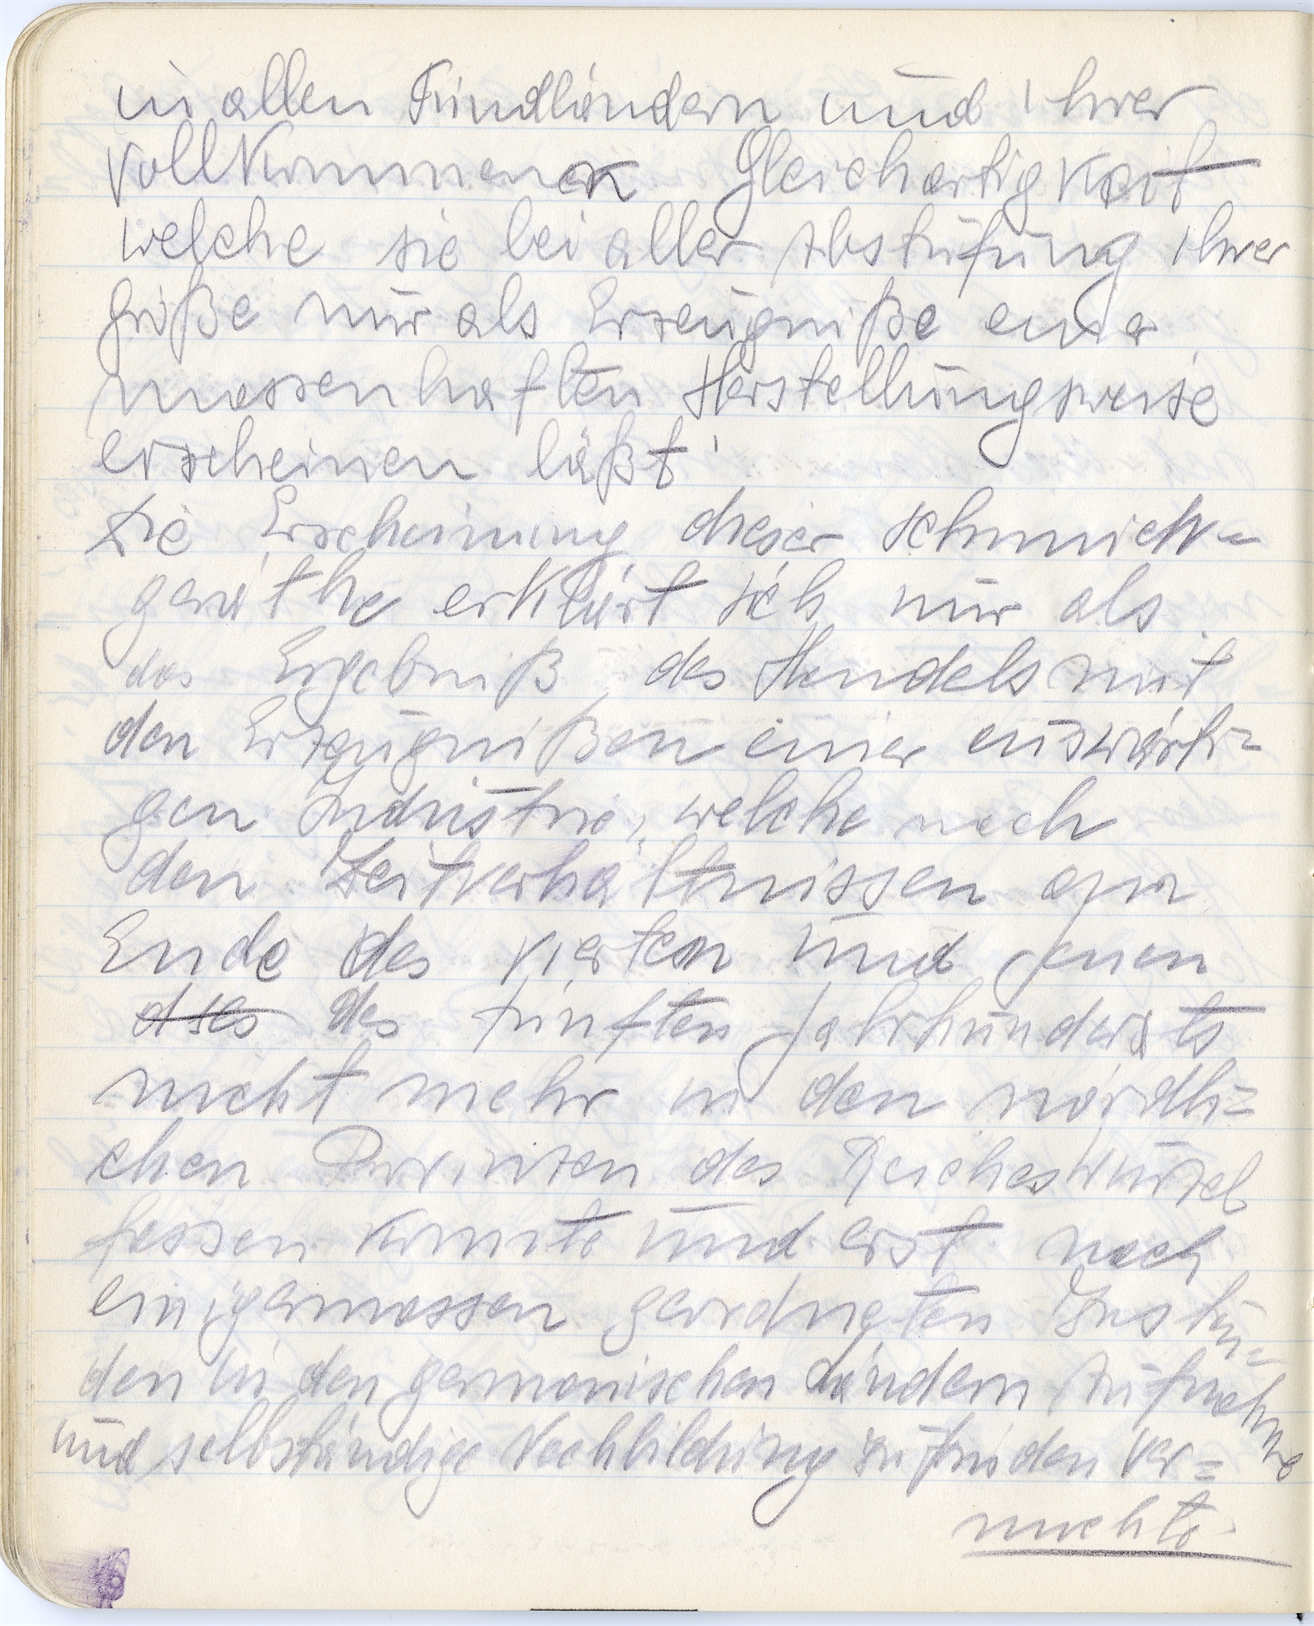 in allen Fundländern und ihrer
vollkommenen Gleichartigkeit
welche sie bei aller Abstufung ihrer
Größe nur als Erzeugniße einer
massenhaften Herstellungsweise
erscheinen läßt.
Die Erscheinung dieser Schmuck-
geräthe erklärt sich nur als
das Ergebniß des Handels mit
den Erzeugnißen einer auswärti=
gen Industrie, welche nach
den Zeitverhältnissen am
Ende des vierten und jenen
des fünften Jahrhunderts
nicht mehr in den nördli=
chen Provinzen des Reiches Wurzel
fassen konnte und erst nach
einigermassen geordneten Zustän=
den in den germanischen Ländern Aufnahme
und selbständige Nachbildung zu finden ver=
mochte.